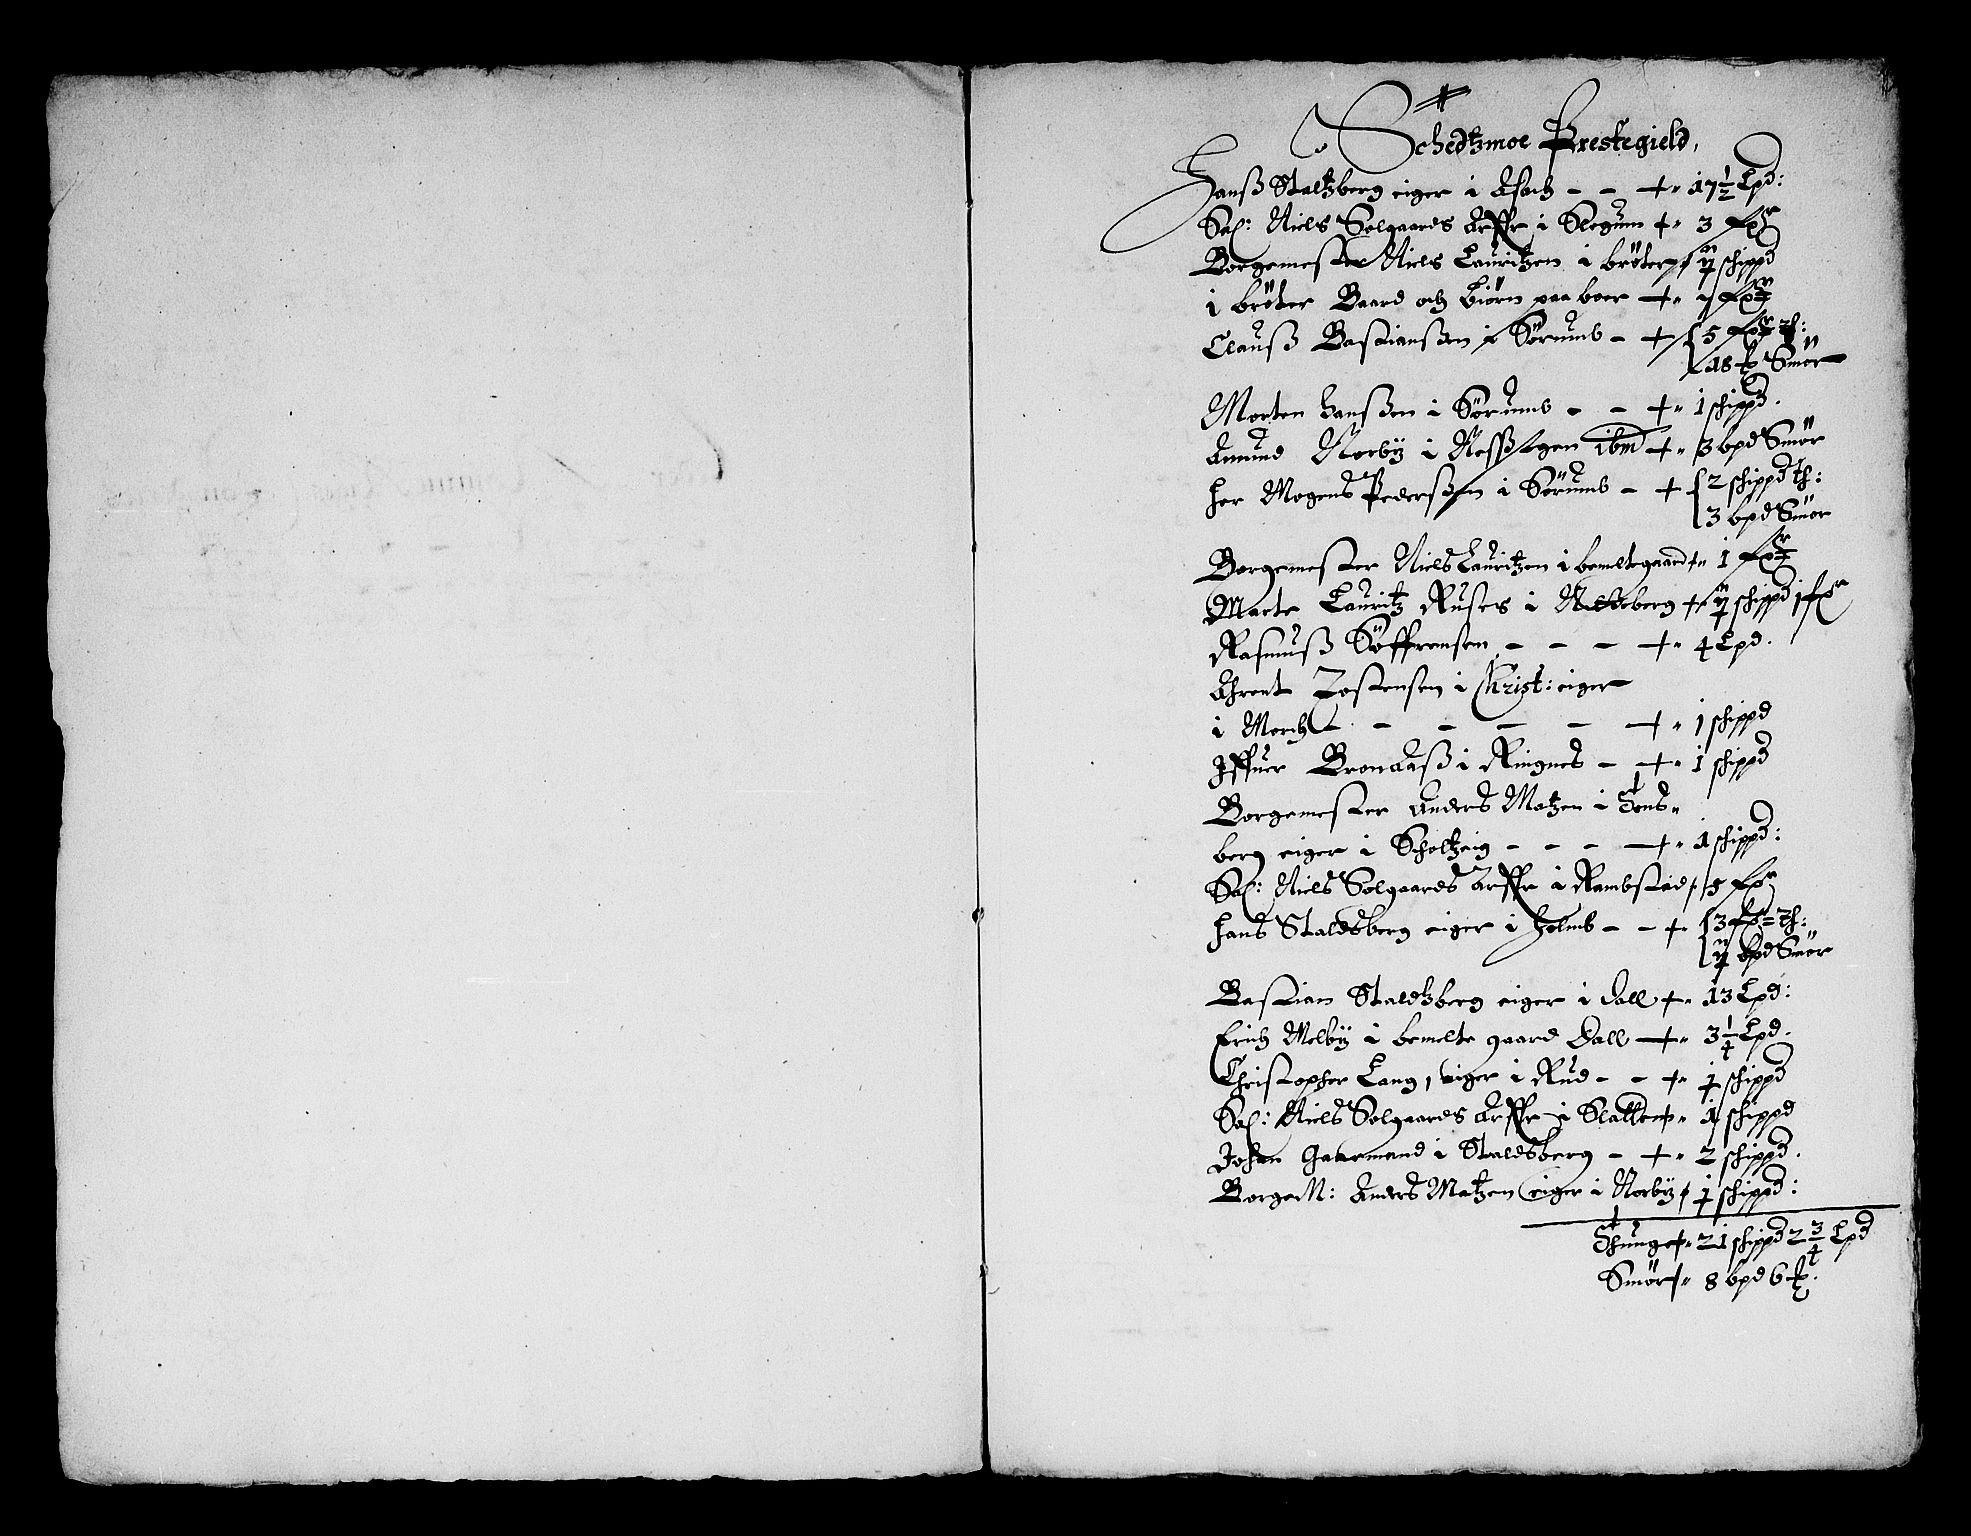 Schedtzmoe Prestegield,
Hansß Staltzberg eiger i Asach - - 17½ Lpd:
Sal: Niels Solgaards Arffr i Slegum 3 fxr
Borgemester Niels Lauritzen i bröter schippd
i bröter Baard och biörn paa boer
Clausß Bastiansßen i Sörumb - 5 fxr Th:
18 Smör
Morten Hansßen i Sörumb - - 1 schippd.
Amund Norby i Nesßegen ibm 3 bpd Smör
Her Mogens Pedersßen i Sörumb - 2 schippd Th:
3 bpd Smör
Borgemester Niels Lauritzen i bemeltegaard 1 fxr
Marte Lauritz Rusers i schippd 1 fxr
Rasmusß Söffrensen - - - 4 Lpd.
Ahrent Tostensen i Christ: eiger
i Morch - - - - 1 schippd
Iffuer Brondasß i Ringnes - 1 schippd
Borgemester Anders Matzen i Tons-
berg eiger i Scholtzeig - - - 1 schippd:
Sal: Niels Solgaards Arffr i Rambstad 5 fxr
Hans Staldsberg eiger i Holmb - - 3 fxr Th:
bpd Smör
Bastian Staldtzberg eiger i Dall 13 Lpd:
Erich Melby i bemelte gaard Dall 3¼ Lpd.
Christopher Lang, eiger i Rud - - schippd
Sal: Niels Solgaards Arffr i Slatten schippd
Johan Gaarmand i Staldsberg - 2 schippd.
BorgeM: Anders Matzen eiger i Norby schippd:
Thunge 21 schippd 2¾ Lpd
Smör 8 bpd 6